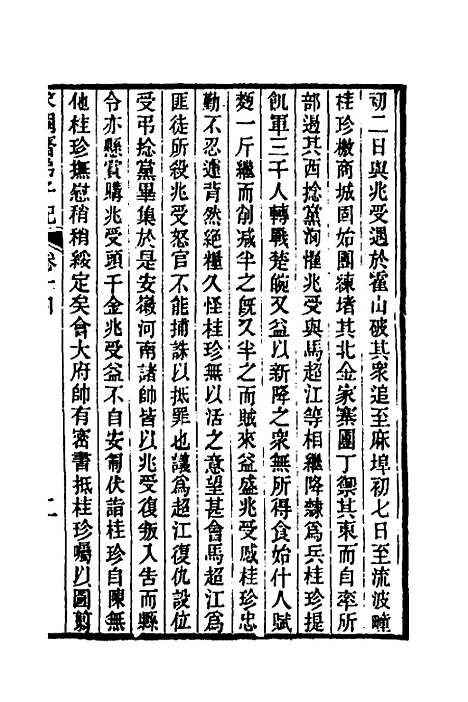 初二日與兆受遇於霍山破其衆追至麻埠初七日至流波䃥
桂珍檄商城固始團練堵其北金家寨團丁禦其東而自率所
部過其西捻黨洶懼兆受與馬超江等相繼降隸爲兵桂珍提
飢軍三千人轉戰楚皖又益以新降之衆無所得食始什人賦
麪一斤繼而削減半之旣又半之而賊來益盛兆受感桂珍忠
勤不忍遽背然絶糧久怪桂珍無以活之意望甚會馬超江爲
匪徒所殺兆受怒官不能捕誅以抵罪也議爲超江復仇設位
受弔捻黨畢集於是安徽河南諸帥皆以兆受復叛入告而縣
令亦懸賞購兆受頭千金兆受益不自安匍伏詣桂珍自陳無
他桂珍撫慰稍稍綏定矣會大府帥有密書抵桂珍囑以圖剪
卷十四
二